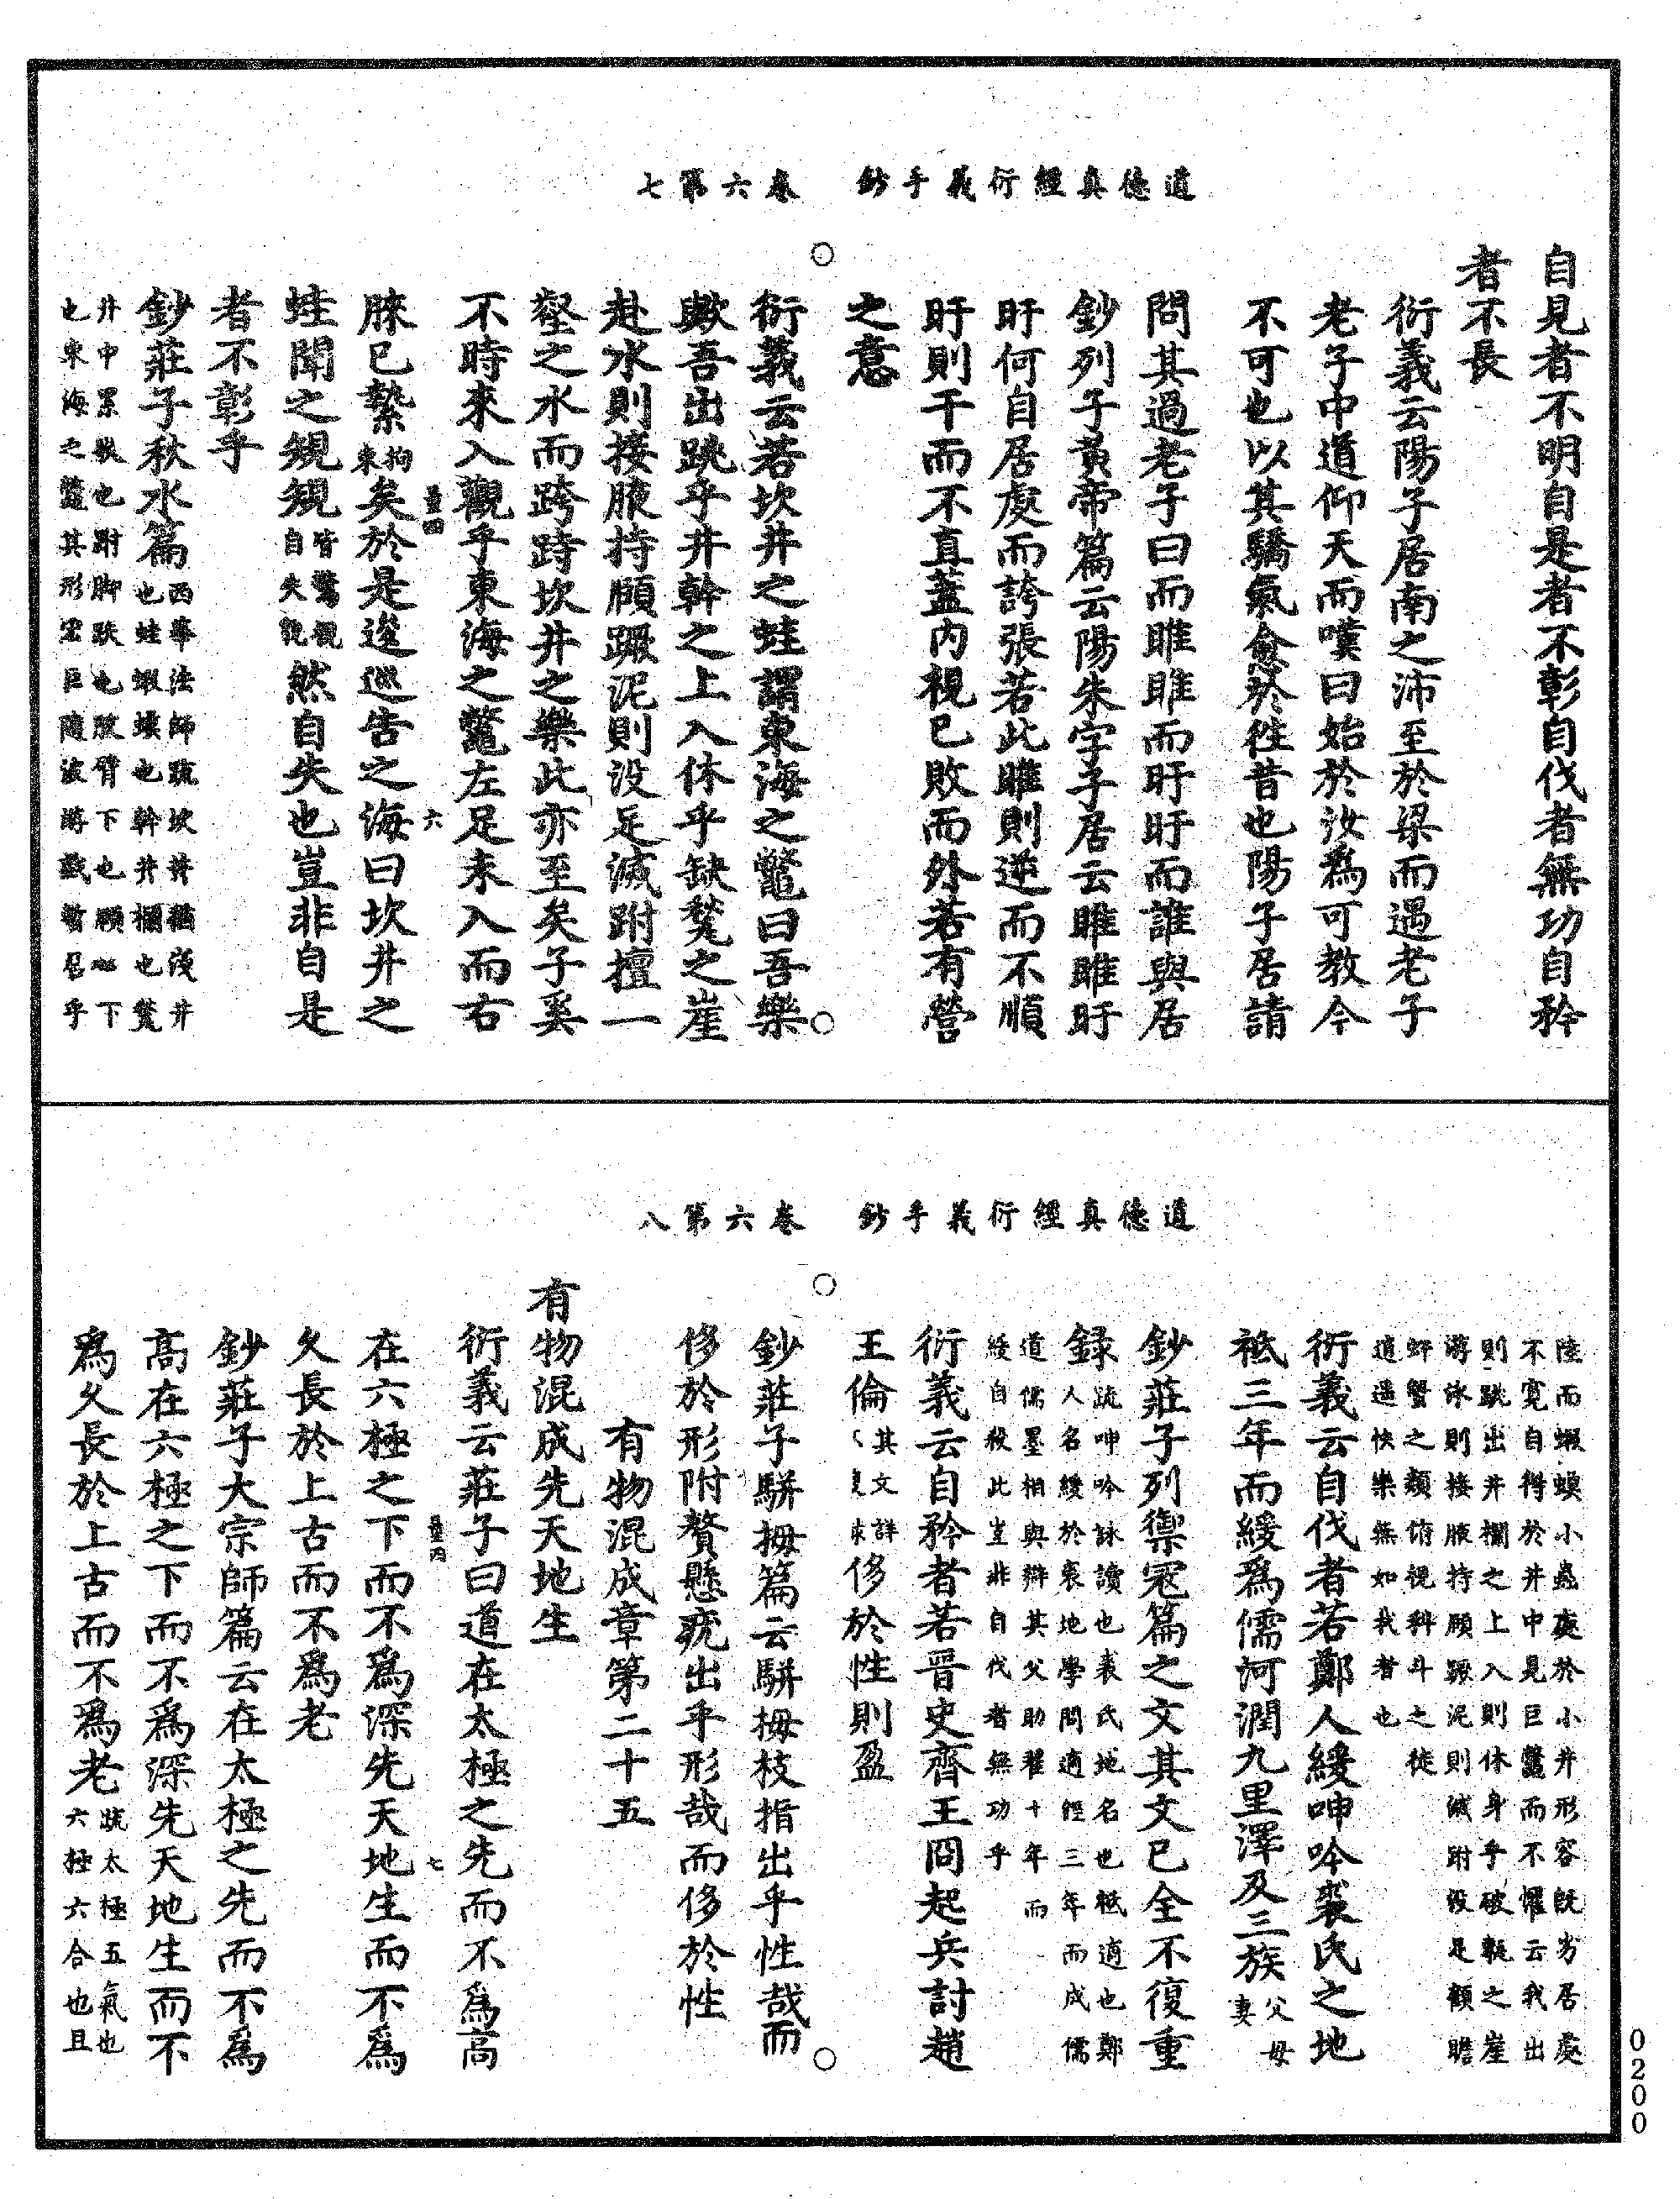 道德真經衍義手鈔　卷六第七
自見者不明自是者不彰自伐者無功自矜
者不長
衍義云陽子居南之沛至於梁而遇老子
老子中道仰天而嘆曰始於汝為可教今
不可也以其驕氣愈於徃昔也陽子居請
問其過老子曰而睢睢而盱盱而誰與居
鈔列子黃帝篇云陽朱字子居云睢睢盱
盱何自居處而誇張若此睢則逆而不順
盱則干而不直蓋內視已敗而外若有營
之意
衍義云若坎井之蛙謂東海之鼈曰吾樂
歟吾出跳乎井幹之上入休乎缺甃之崖
赴水則接腋持頤蹶泥則沒足滅跗擅一
壑之水而跨跱坎井之樂此亦至矣子奚
不時來入觀乎東海之鼈左足未入而右
膝已縶拘束矣於是逡巡告之海曰坎井之
蛙聞之䂓䂓皆驚視自失貌然自失也豈非自是
者不彰乎
鈔莊子秋水篇西華法師疏坎井猶淺井
也蛙蝦蟆也幹井欄也甃
井中累甎也跗脚趺也肱臂下也頤口下
也東海之鼈其形宏巨隨波游戲暫居乎
道德真經衍義手鈔　卷六第八
陸而蝦蟆小蟲處於小井形容既劣居處
不寬自得於井中見巨鼈而不懼云我出
則跳出井欄之上入則休身乎破甎之崖
游泳則接腋持頤蹶泥則滅跗沒是顧瞻
蚶蟹之類俯視科斗之徒
逍遥快樂無如我者也
衍義云自伐者若鄭人緩呻吟裘氏之地
祇三年而緩為儒河潤九里澤及三族父母妻
鈔莊子列禦寇篇之文其文已全不復重
録疏呻吟詠讀也裘氏地名也祇適也鄭
人名緩於裘地學問適經三年而成儒
道儒墨相與辯其父助翟十年而
緩自殺此豈非自伐者無功乎
衍義云自矜者若晉史齊王冏起兵討趙
王倫其文詳侈於性則盈
鈔莊子駢拇篇云駢拇枝指出乎性哉而
侈於形附贅懸疣出乎形哉而侈於性
有物混成章第二十五
有物混成先天地生
衍義云莊子曰道在太極之先而不為高
在六極之下而不為深先天地生而不為
久長於上古而不為老
鈔莊子大宗師篇云在太極之先而不為
高在六極之下而不為深先天地生而不
為久長於上古而不為老疏太極五氣也六極六合也且
0200